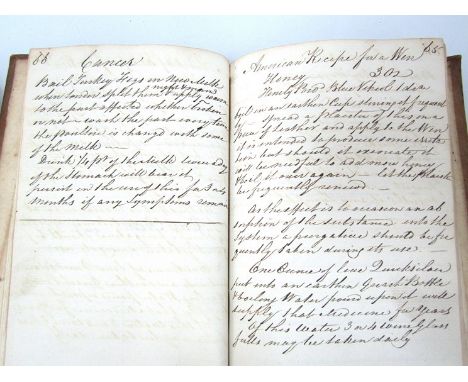 88
Cancer
Boil Turkey Figs in New Milk
when tender split them & apply warm
to the part affected whether broken
or not – wash the part every time
the poultice is changed with some
of the Milk —
Drink ½ pt of the Milk twice a day
if the Stomach will bear it
persist in the use of this for 3 or 4
Months if any Symptoms remain
85
American Recipe for a Wen
Honey 3 Oz
Finely Blue Vitriol
but in an earthen Cup
spread a plaster of this on a
piece of leather and apply to the Wen
it is intended to produce some
it
will be needful to add more honey
& boil it over again — let the plaster
be frequently renewed —
As the effect is to occasion an ab
sorption of the Substance into the
System a purgative should be fre
quently taken during its use —
One Ounce of live Quicksilver
put into an earthen Quart Bottle
& boiling Water poured upon it will
supply that Medicine for Years
Of this Water 3 or 4 Wine Glass
fulls may be taken daily